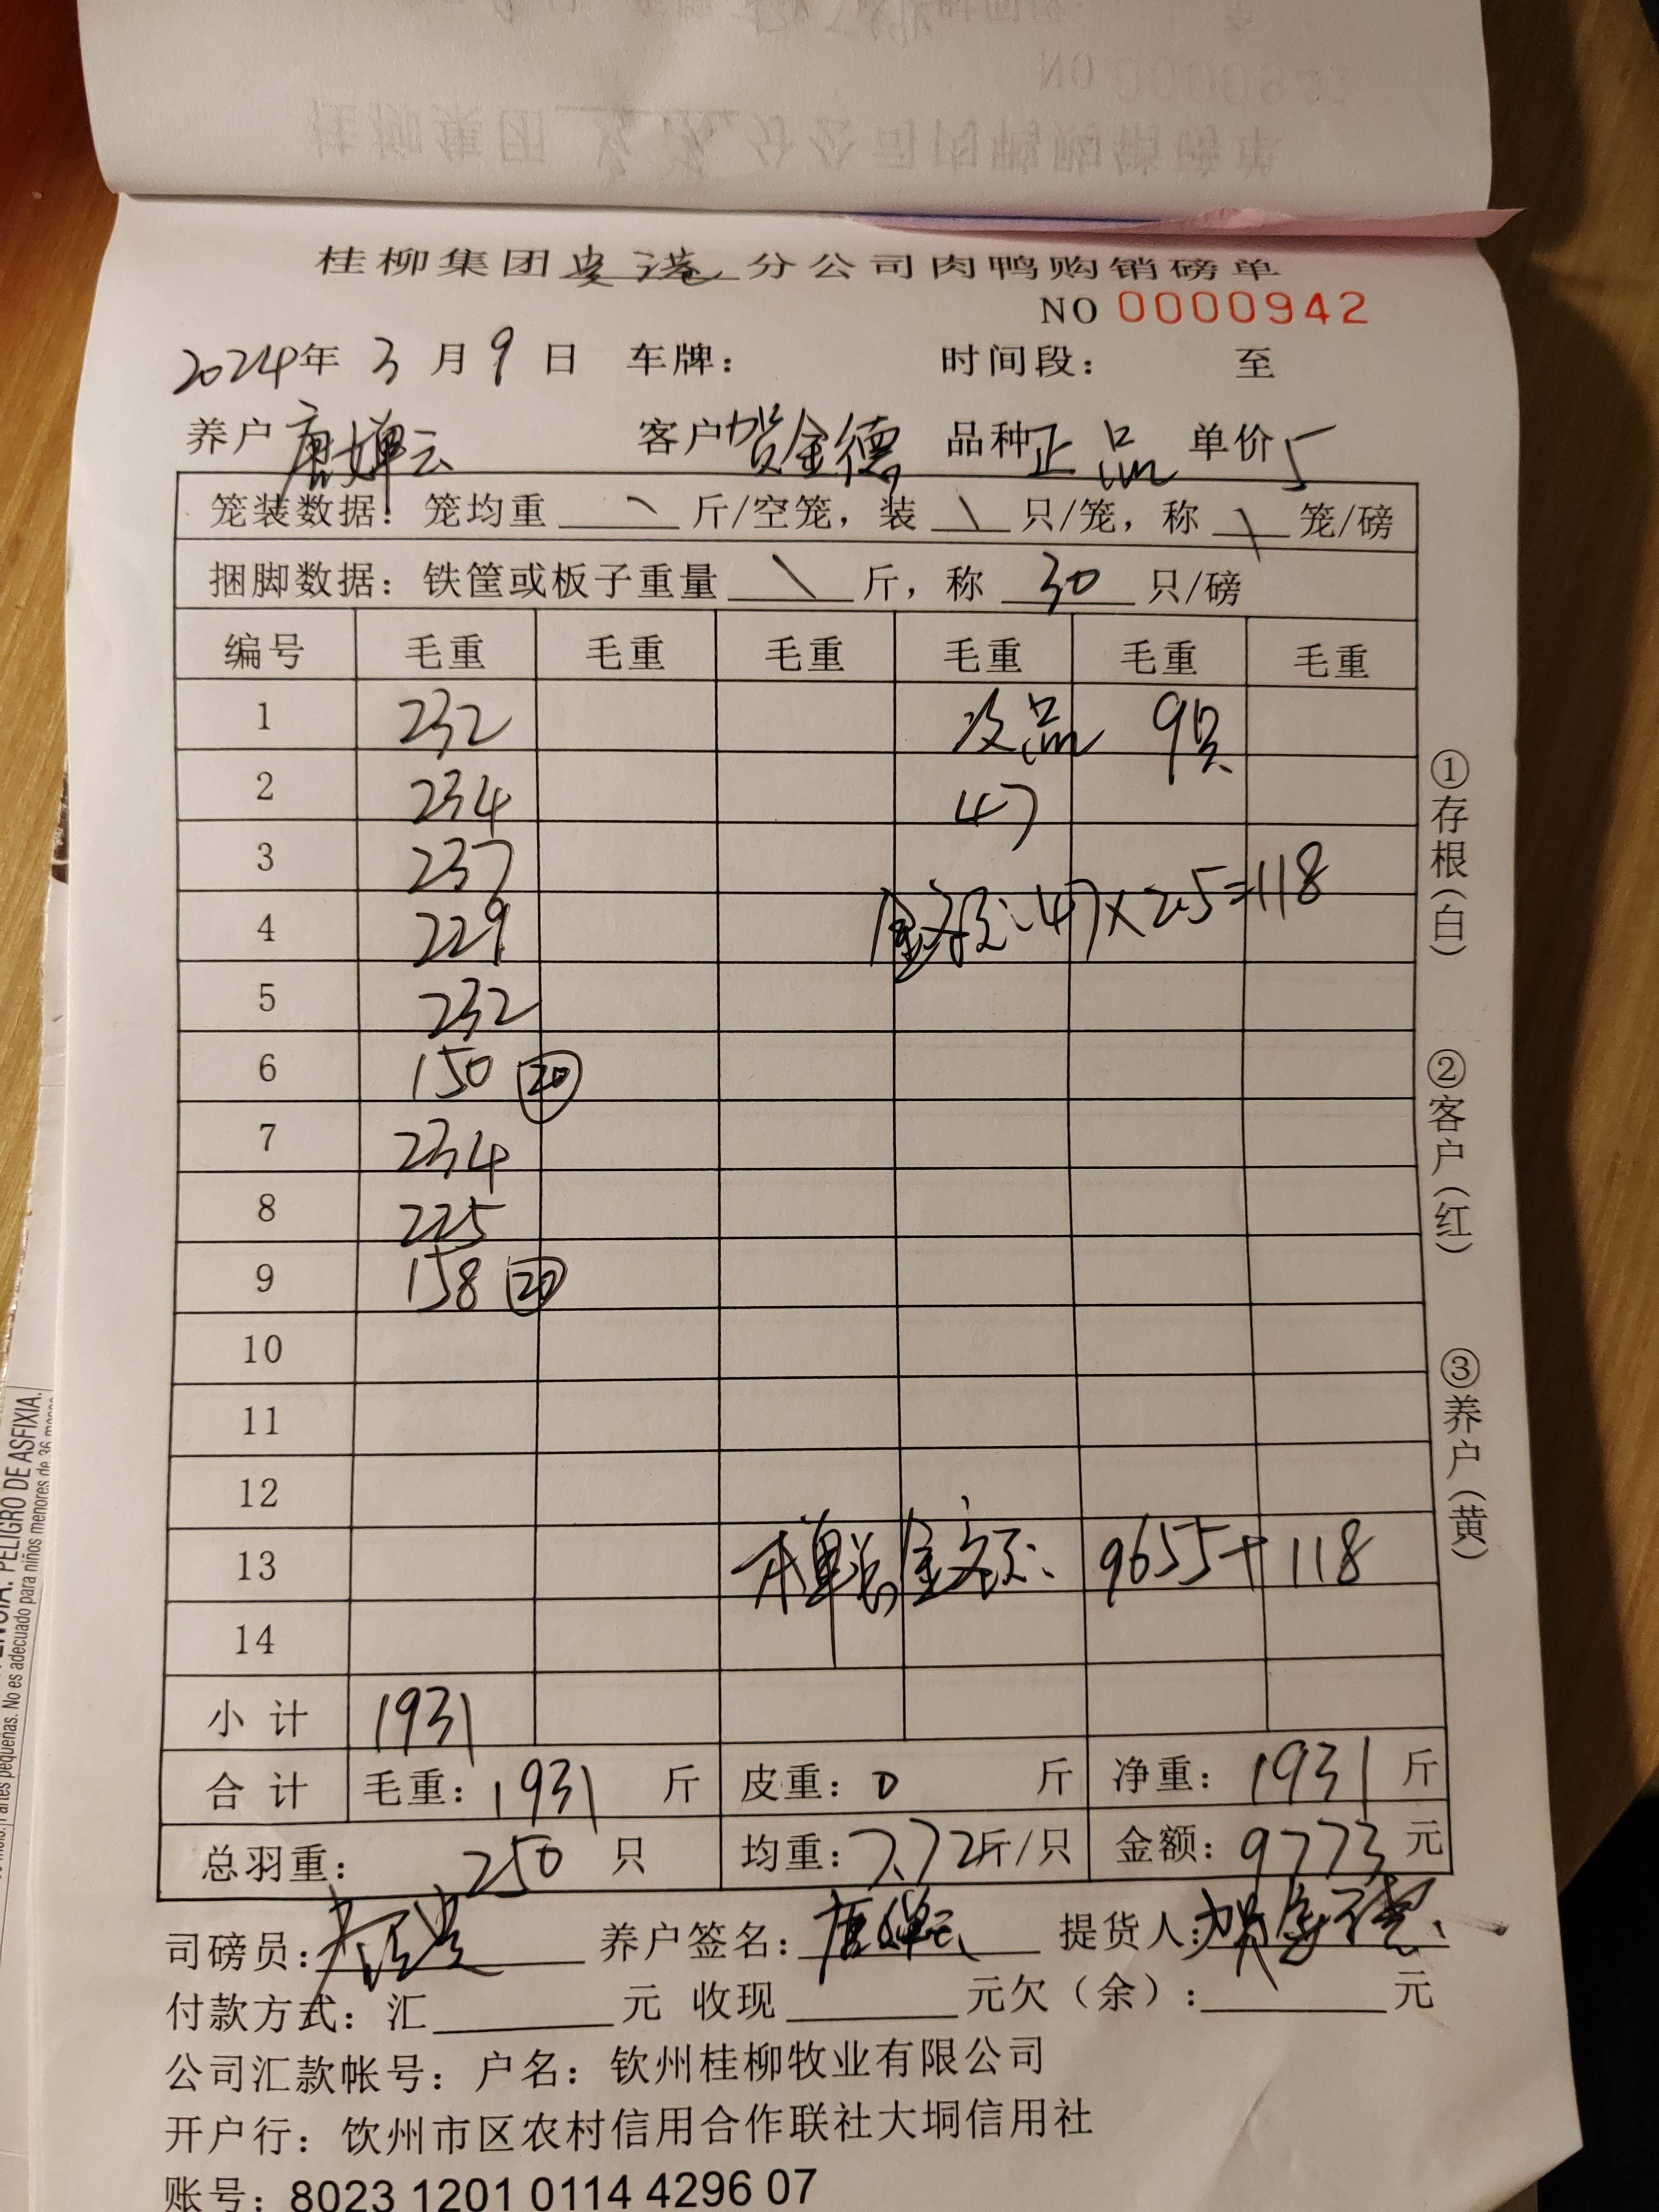 桂柳集团贵港分公司肉鸭购销磅单
NO 0000942
2024年 3 月 9 日 车牌： 时间段： 至
养户 唐婵云 客户 贺金德 品种 正品 单价 5
笼装数据：笼均重 \ 斤/空笼，装 \ 只/笼，称 \ 笼/磅
捆脚数据：铁筐或板子重量 \ 斤，称 30 只/磅
编号 毛重 毛重 毛重 毛重 毛重 毛重
1 232 次品 9只
2 234 47
3 237
4 229 金额：47×2.5=118
5 232
6 150 20
7 234
8 225
9 158 20
10
11
12
13 本单总金额： 9655+118
14
小计 1931
合计 毛重：1931 斤 皮重：0 斤 净重：1931 斤
总羽重： 250 只 均重：7.72斤/只 金额：9773 元
司磅员： 养户签名：唐婵云 提货人：贺金德
付款方式：汇 元 收现 元欠（余）： 元
公司汇款帐号：户名：钦州桂柳牧业有限公司
开户行：钦州市区农村信用合作联社大垌信用社
账号：8023 1201 0114 4296 07
①存根（白）
②客户（红）
③养户（黄）
PELIGRO DE ASFIXIA.
partes pequeñas. No es adecuado para niños menores de 36